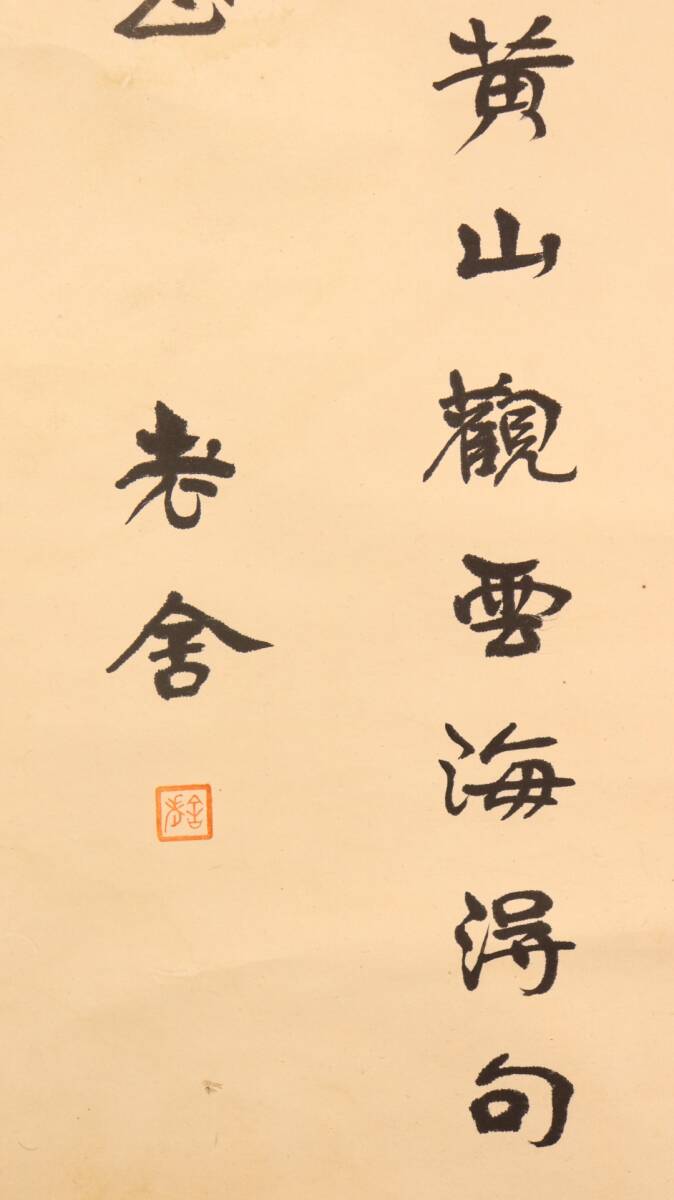 黃山觀雲海得句
老舍